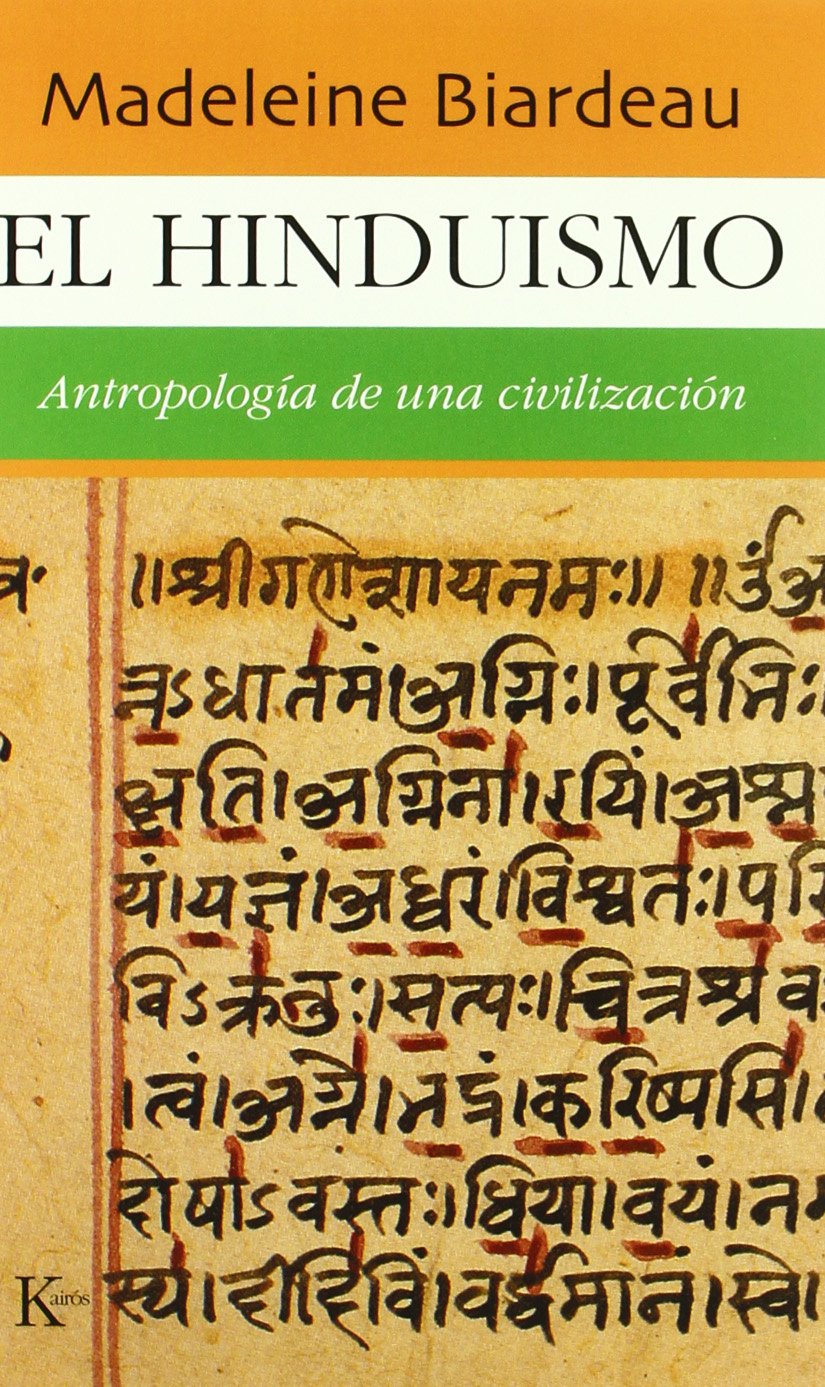 Madeleine Biardeau
EL HINDUISMO
Antropología de una civilización
॥श्रीगणेशायनमः॥ ॥उँअ
त्नऽधातमं।अग्निः।पूर्वेभिः।
क्षति।अग्निना।रयिं।अश्न
यं।यज्ञं।अध्वरं।विश्वतः।परि
विऽक्रतुः।सत्यः।चित्रश्रव
।त्वं।अग्ने।भद्रं।करिष्यसि।
दोषाऽवस्तः।धिया।वयं।नम
स्य।दीदिविं।वर्द्धमानं।स्वे
Kairós